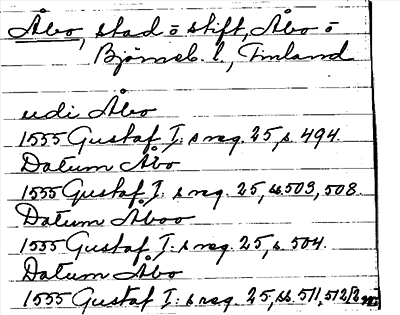 Åbo, stad o stift, Åbo o
Björneb. l., Finland
udi Åbo
1555 Gustaf I: s reg. 25, s. 494.
Datum Åbo
1555 Gustaf I: s reg. 25, ss. 503, 508.
Datum Åboo
1555 Gustaf I: s reg. 25, s. 504.
Datum Åbo
1555 Gustaf I: s reg. 25, ss. 511, 512/2